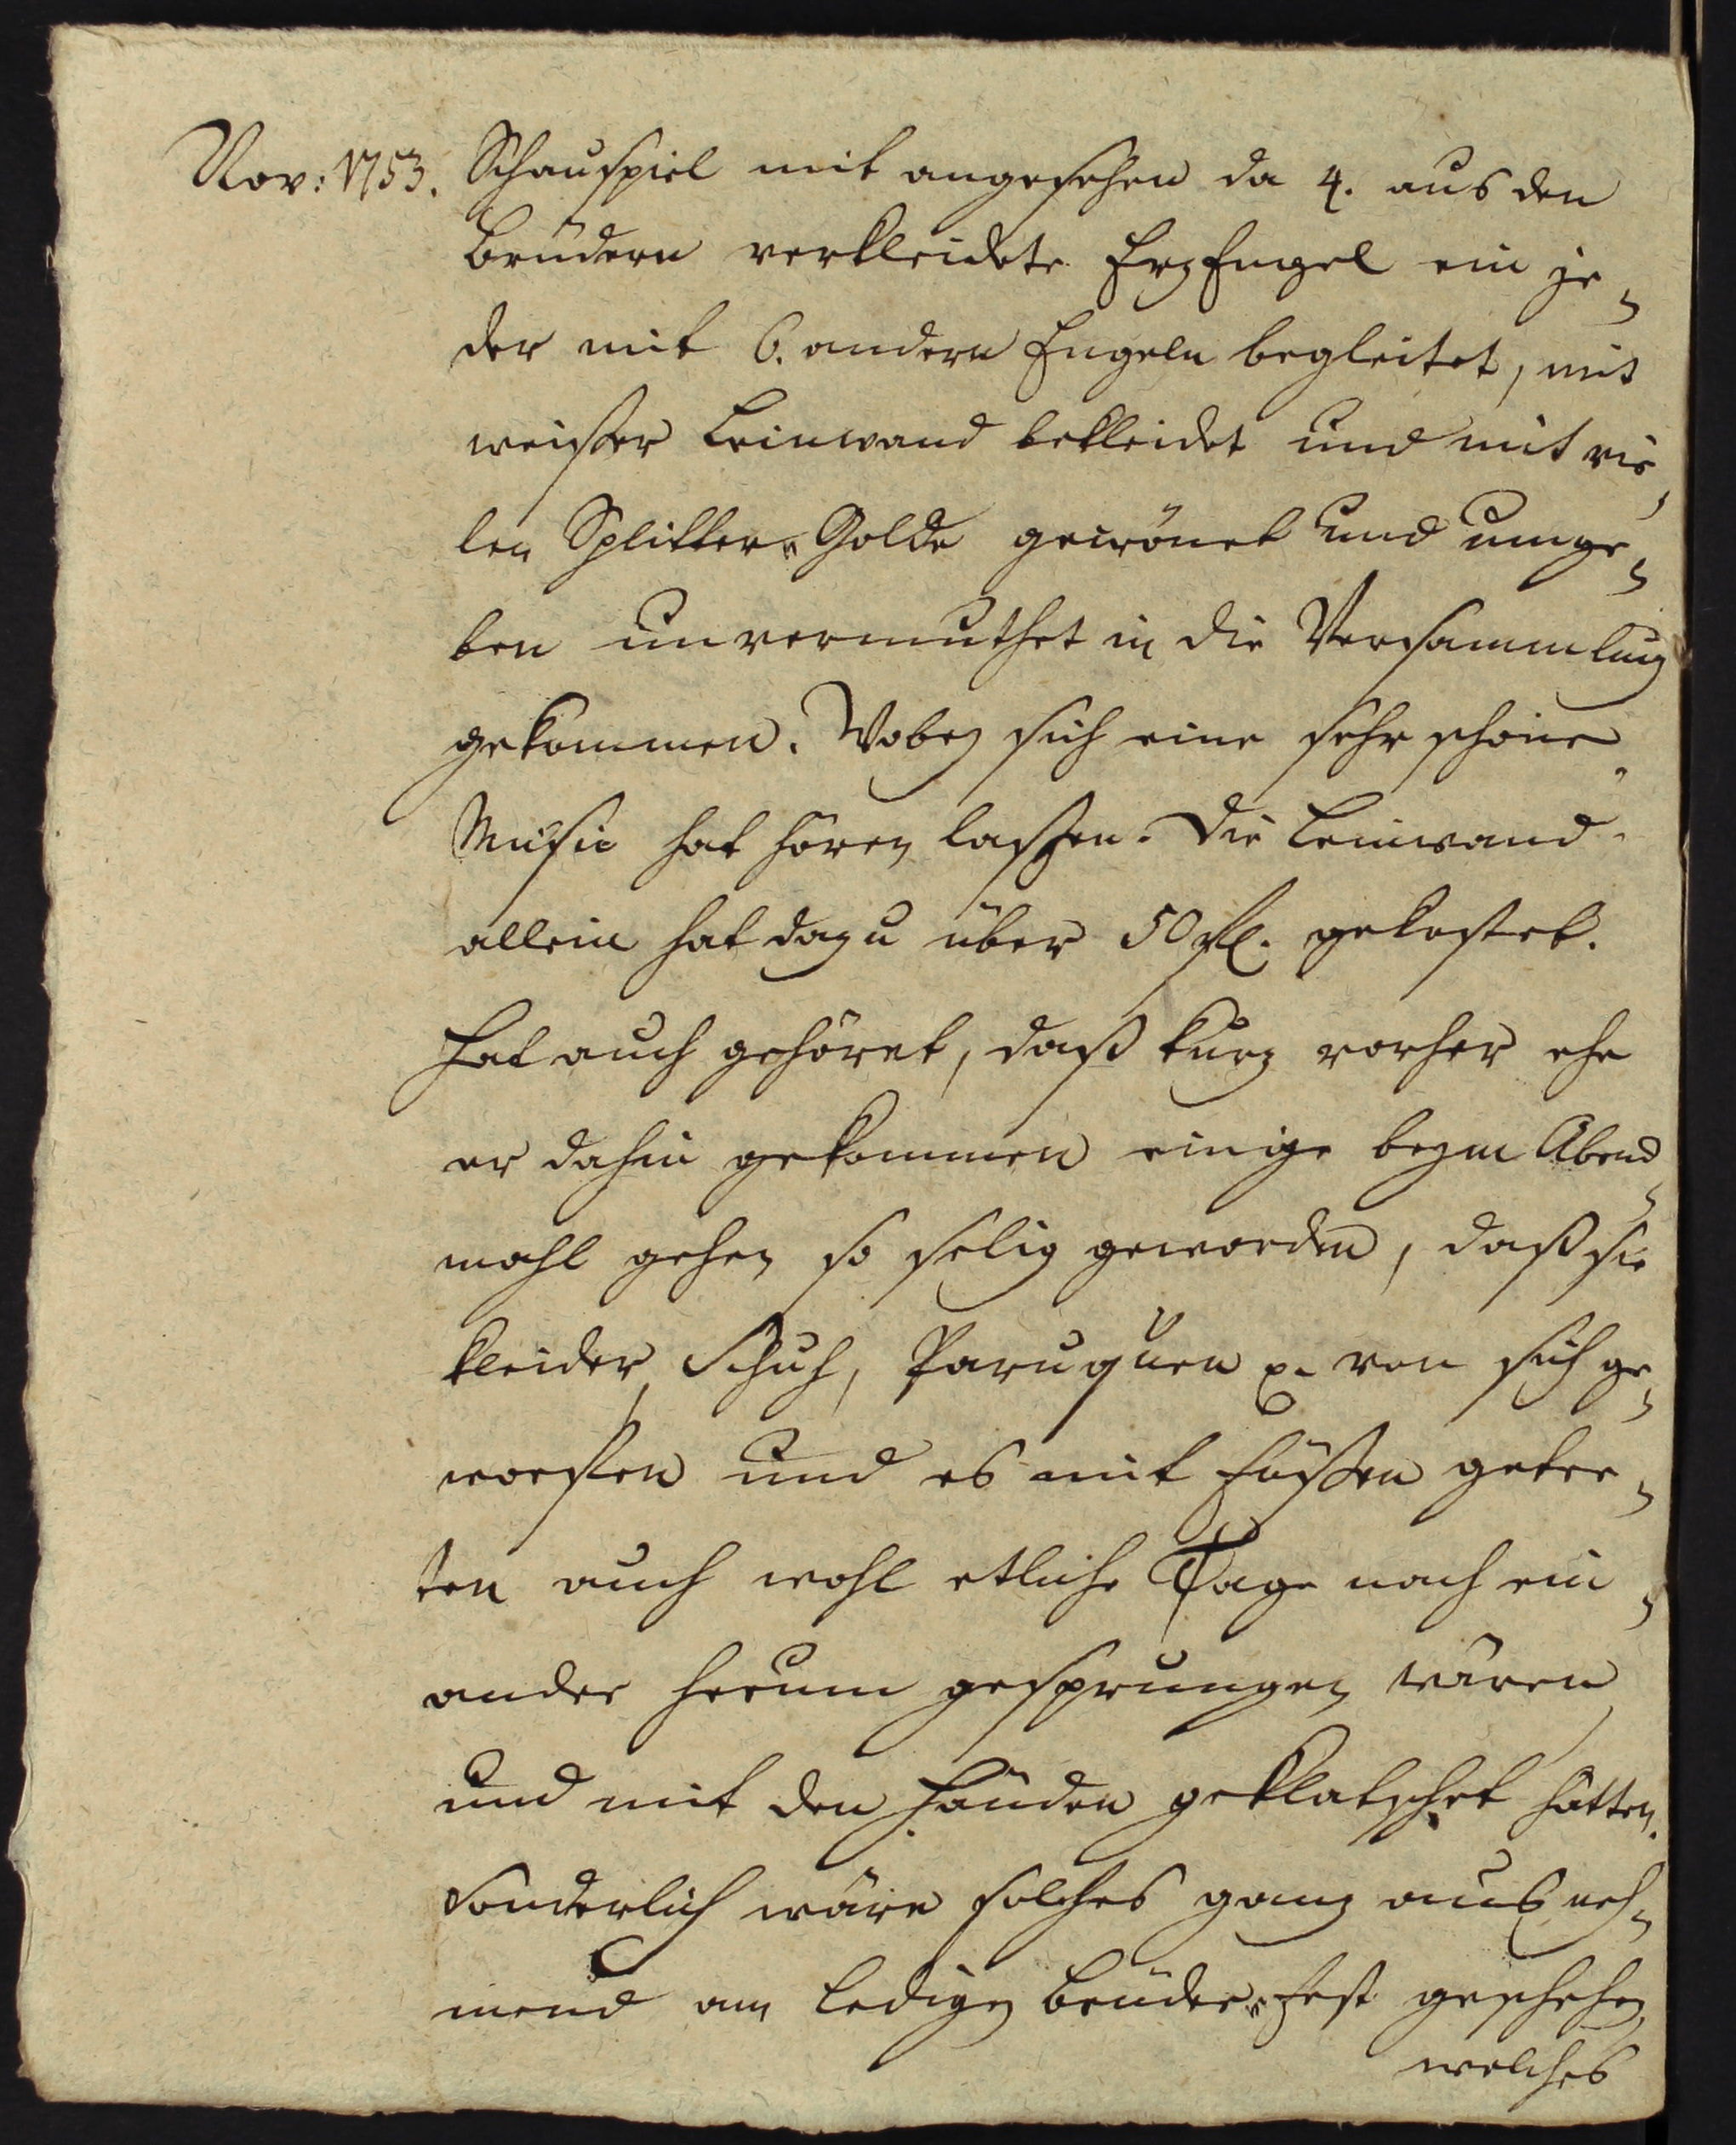 Nov: 1753. Schauspiel mit angesehen da 4. aus den
Brüdern verkleidete ErzEngel ein je-
der mit 6. andern Engeln begleitet, mit
weisser Leinwand bekleidet und mit vie-
len Splitter-Golde gecrönet und umge-
ben unvermuthet in die Versammlung
gekommen. Wobey sich eine sehr schöne
Music hat hören lassen. Die Leinwand
allein hat dazu über 50 fl. gekostet.
Hat auch gehöret, daß kurz vorher ehe
er dahin gekommen einige beym Abend-
mahl gehen so selig geworden, daß sie
Kleider, Schuh, Paruquen p. von sich ge-
worffen und es mit Füssen getre-
ten auch wohl etliche Tage nach ein-
ander herum gesprungen wären
und mit den Händen geklatschet hätten.
Sonderlich wäre solches ganz ausneh-
mend am Ledigen Brüder-Fest geschehen,
welches